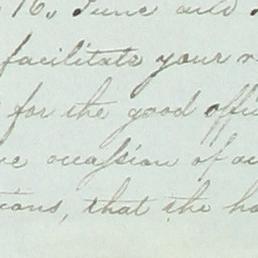 16. June and
facilitate your
for the good offi
occassion of
ions, that the ho